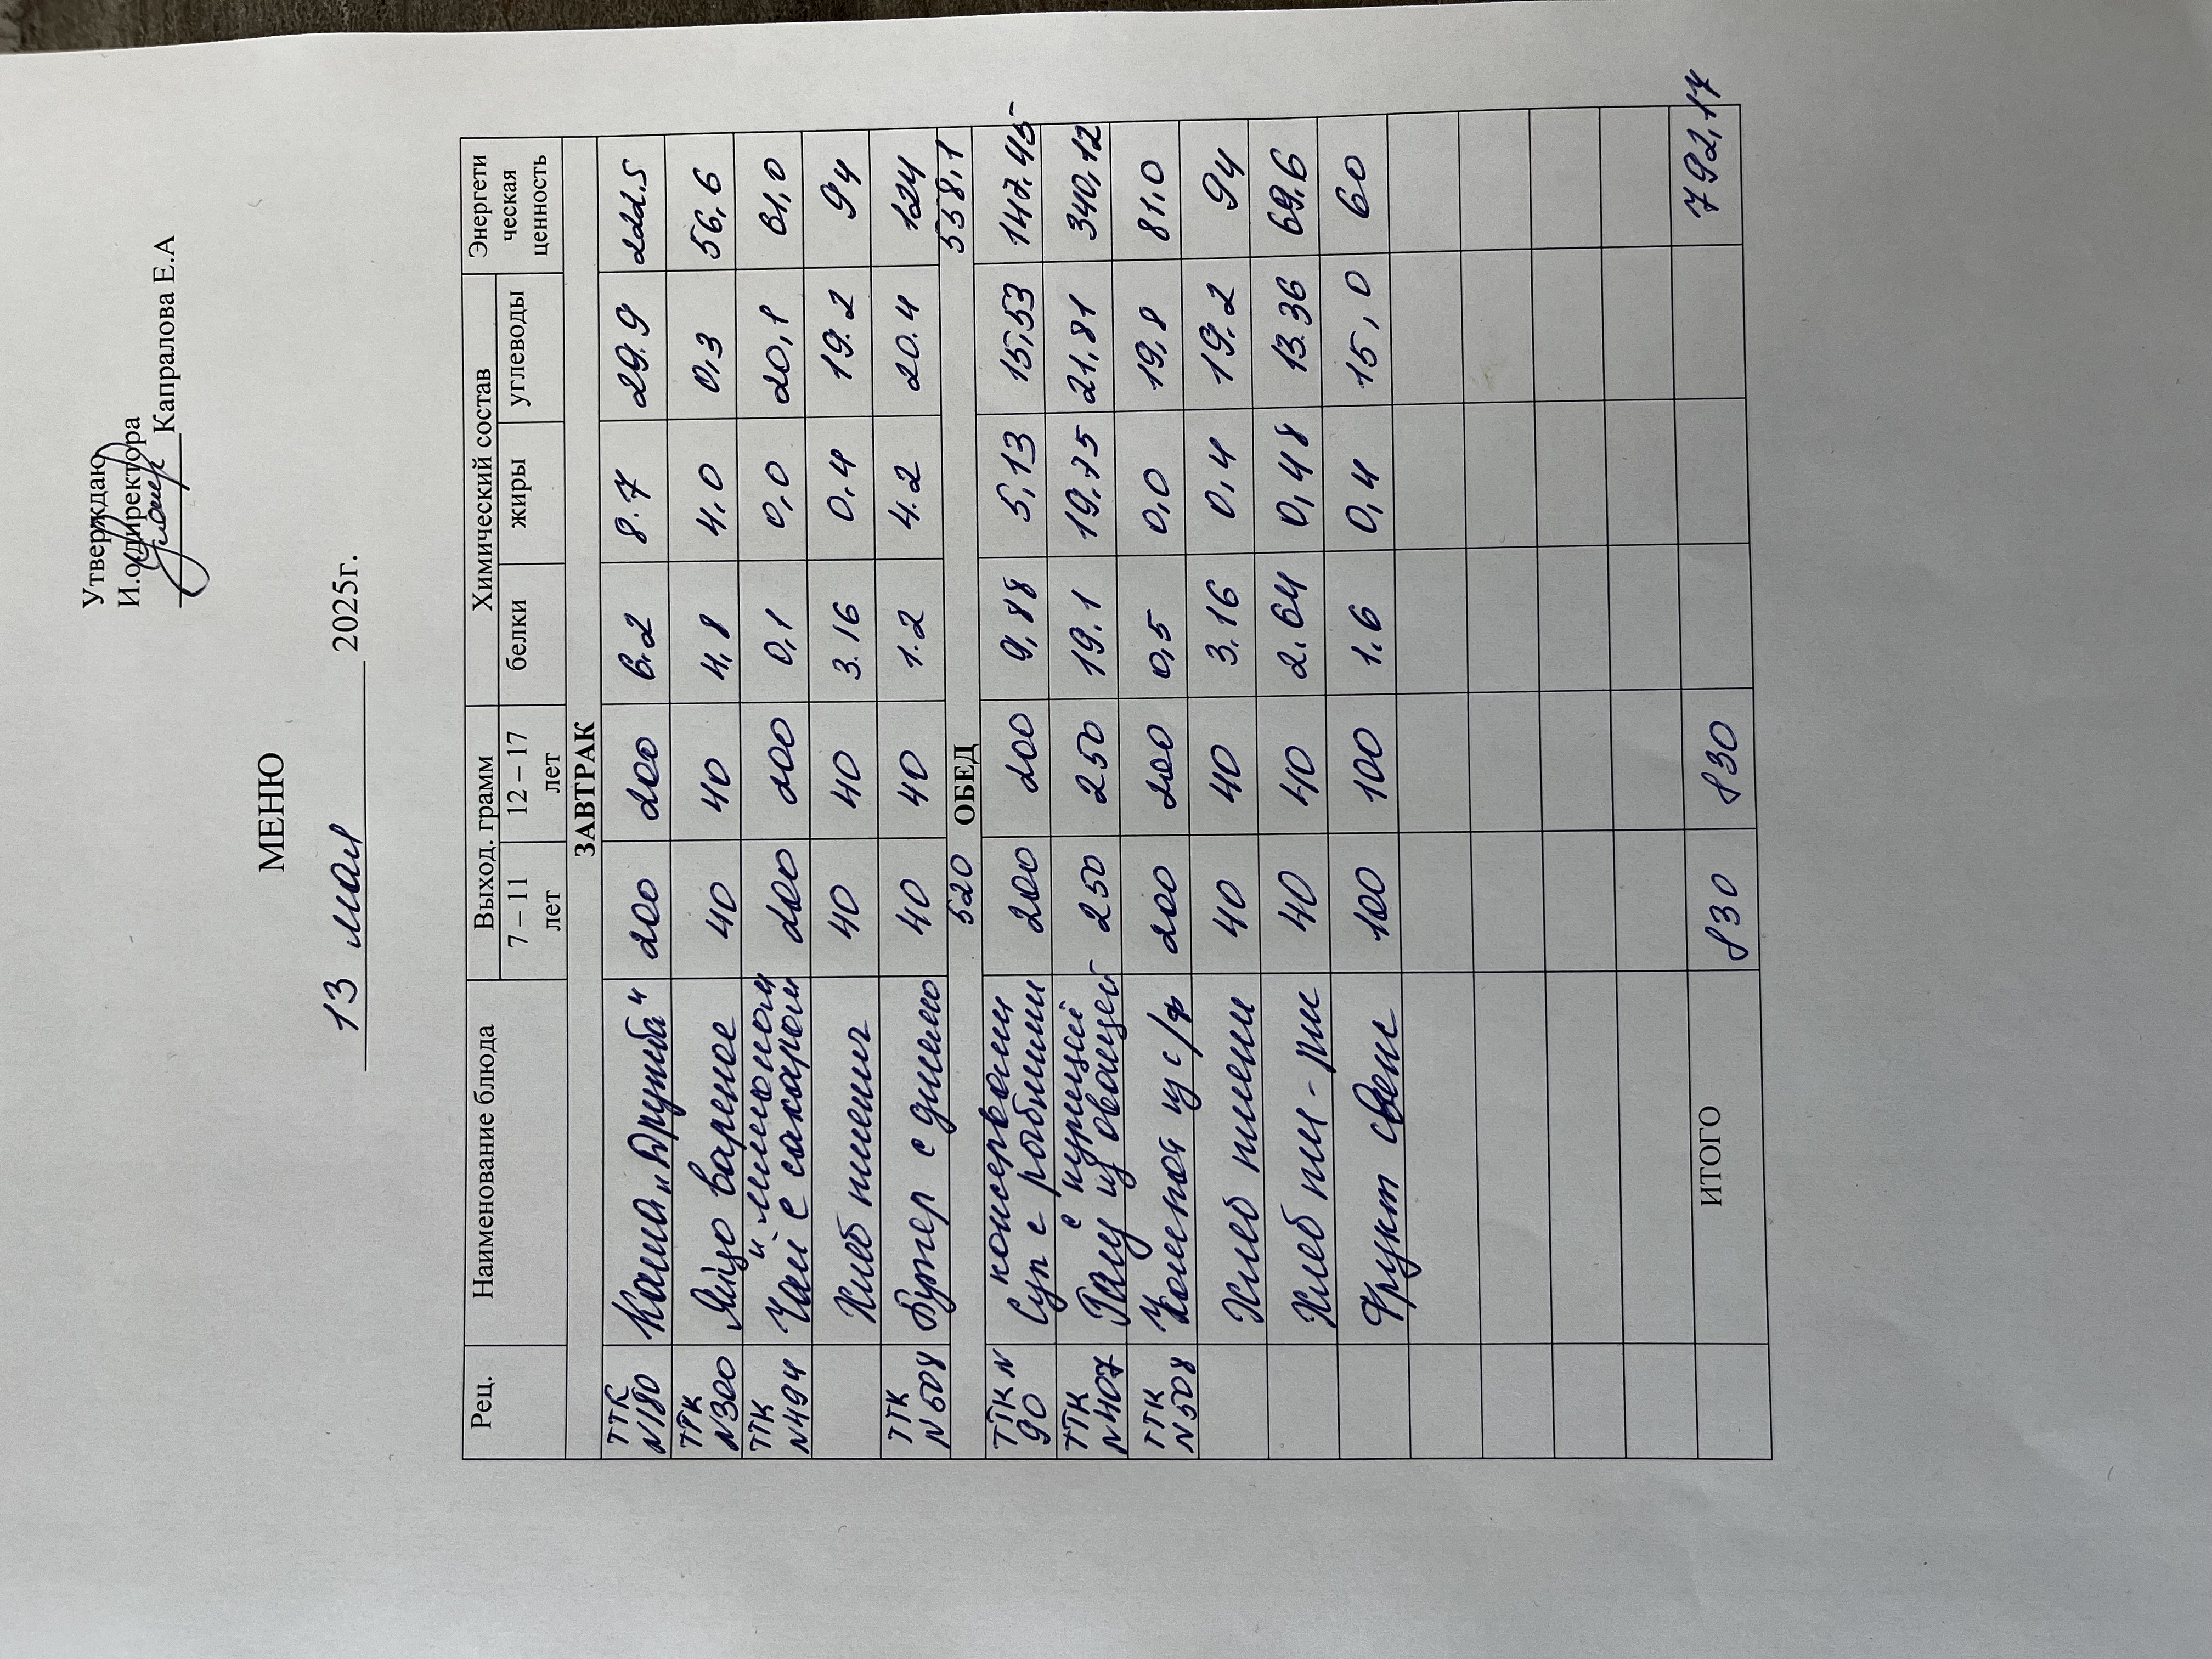 Утверждаю
И.о директора
Капралова Е.А
МЕНЮ
13 мая 2025г.
Рец. Наименование блюда Выход. грамм Химический состав Энергети ческая ценность
7 – 11 лет 12 – 17 лет белки жиры углеводы
ЗАВТРАК
ТТК N180 Каша „Дружба" 200 200 6.2 8.7 29.9 222.5
ТТК N300 Яйцо вареное 40 40 4,8 4,0 0,3 56,6
ТТК N494 Чай с сахаром и лимоном 200 200 0,1 0,0 20,1 61,0
Хлеб пшенич 40 40 3.16 0,4 19.2 94
ТТК N508 Бутер с джемо 40 40 1.2 4.2 20.4 124
520 ОБЕД 558,1
ТТК N 90 Суп с рыбными консервами 200 200 9,88 5,13 15,53 147.45
ТТК N407 Рагу из овощей с курицей 250 250 19.1 19,75 21,81 340,12
ТТК N508 Компот из с/ф 200 200 0,5 0,0 19,8 81,0
Хлеб пшени 40 40 3,16 0,4 19,2 94
Хлеб пш-рж 40 40 2.64 0,48 13.36 69,6
Фрукт свеж 100 100 1.6 0,4 15,0 60
ИТОГО 830 830 792,17